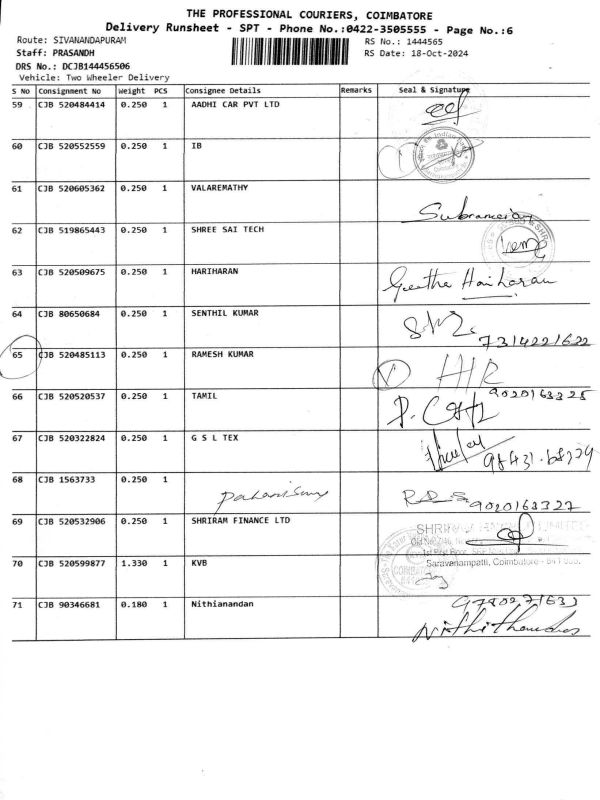 THE PROFESSIONAL COURIERS, COIMBATORE
Delivery Runsheet - SPT - Phone No.:0422-3505555 - Page No.:6
Route: SIVANANDAPURAM
RS No.: 1444565
Staff: PRASANDH
RS Date: 18-Oct-2024
DRS No.: DCJB144456506
Vehicle: Two Wheeler Delivery
S No Consignment No Weight PCS Consignee Details Remarks Seal & Signature
59 CJB 520484414 0.250 1 AADHI CAR PVT LTD
60 CJB 520552559 0.250 1 IB
61 CJB 520605362 0.250 1 VALAREMATHY
62 CJB 519865443 0.250 1 SHREE SAI TECH
63 CJB 520509675 0.250 1 HARIHARAN
Geetha Hariharan
64 CJB 80650684 0.250 1 SENTHIL KUMAR
7314221622
65 CJB 520485113 0.250 1 RAMESH KUMAR
66 CJB 520520537 0.250 1 TAMIL
9020163325
67 CJB 520322824 0.250 1 G S L TEX
68 CJB 1563733 0.250 1
9020163327
69 CJB 520532906 0.250 1 SHRIRAM FINANCE LTD
Saravanampatti, Coimbatore
70 CJB 520599877 1.330 1 KVB
COIMBATORE
71 CJB 90346681 0.180 1 Nithianandan